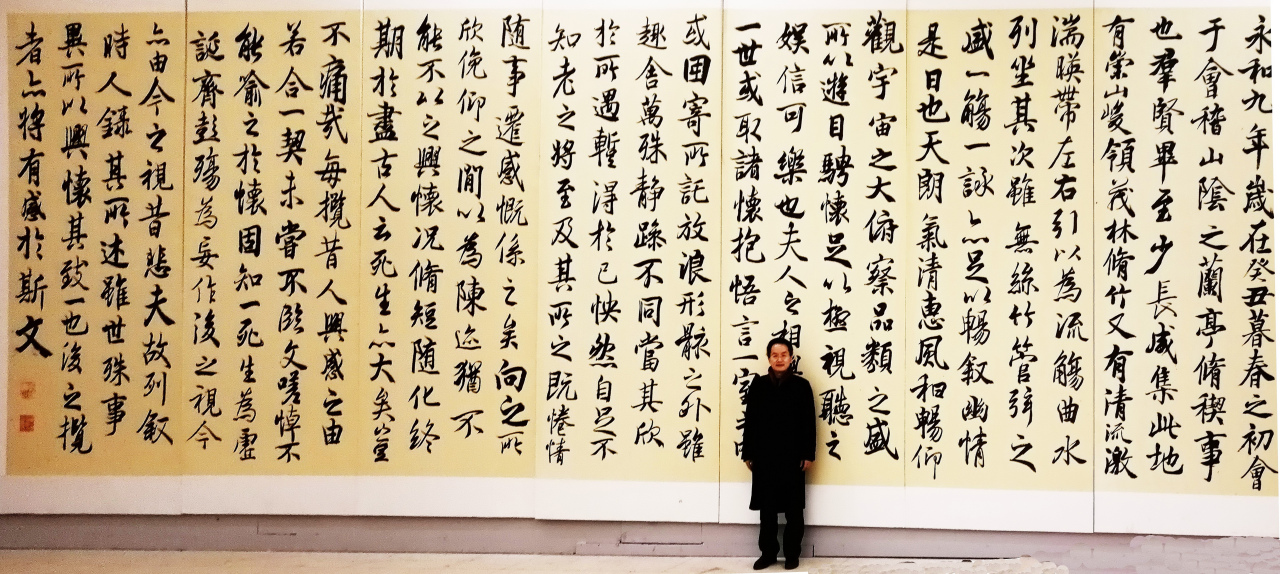 永和九年歲在癸丑暮春之初會
于會稽山陰之蘭亭脩稧事
也羣賢畢至少長咸集此地
有崇山峻領茂林脩竹又有清流激
湍暎帶左右引以為流觴曲水
列坐其次雖無絲竹管弦之
盛一觴一詠亦足以暢叙幽情
是日也天朗氣清惠風和暢仰
觀宇宙之大俯察品類之盛
所以遊目騁懷足以極視聽之
娛信可樂也夫人之相與
一世或取諸懷抱悟言一室之內
或因寄所託放浪形骸之外雖
趣舍萬殊静躁不同當其欣
於所遇暫得於己怏然自足不
知老之將至及其所之既惓情
隨事遷感慨係之矣向之所
欣俛仰之閒以為陳迹猶不
能不以之興懷況脩短隨化終
期於盡古人云死生亦大矣豈
不痛哉每攬昔人興感之由
若合一契未嘗不臨文嗟悼不
能喻之於懷固知一死生為虛
誕齊彭殤為妄作後之視今
亦由今之視昔悲夫故列叙
時人錄其所述雖世殊事
異所以興懷其致一也後之攬
者亦將有感於斯文